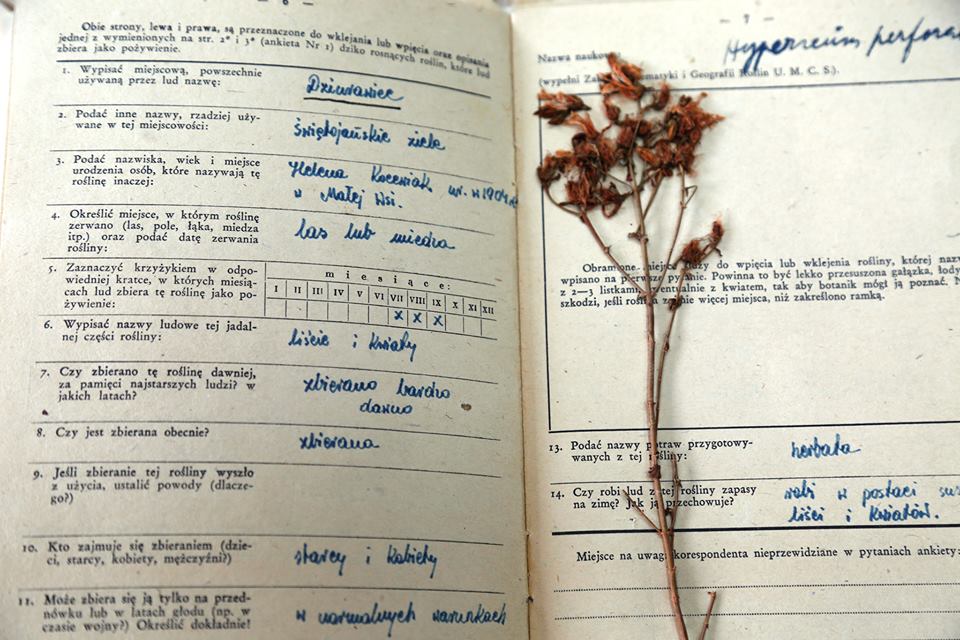 — 6 —
Obie strony, lewa i prawa, są przeznaczone do wklejania lub wpięcia oraz opisania
jednej z wymienionych na str. 2* i 3* (ankieta Nr 1) dziko rosnących roślin, które lud
zbiera jako pożywienie.
1. Wypisać miejscową, powszechnie
używaną przez lud nazwę:
Dziurawiec
2. Podać inne nazwy, rzadziej uży-
wane w tej miejscowości:
Świętojańskie ziele
3. Podać nazwiska, wiek i miejsce
urodzenia osób, które nazywają tę
roślinę inaczej:
Helena ur. w 1904
w Małej Wsi.
4. Określić miejsce, w którym roślinę
zerwano (las, pole, łąka, miedza
itp.) oraz podać datę zerwania
rośliny:
las lub miedza
5. Zaznaczyć krzyżykiem w odpo-
wiedniej kratce, w których miesią-
cach lud zbiera tę roślinę jako po-
żywienie:
miesiące:
I II III IV V VI VII VIII IX X XI XII
x x x
6. Wypisać nazwy ludowe tej jadal-
nej części rośliny:
liście i kwiaty
7. Czy zbierano tę roślinę dawniej,
za pamięci najstarszych ludzi? w
jakich latach?
zbierano bardzo
dawno
8. Czy jest zbierana obecnie?
zbierana
9. Jeśli zbieranie tej rośliny wyszło
z użycia, ustalić powody (dlacze-
go?)
10. Kto zajmuje się zbieraniem (dzie-
ci, starcy, kobiety, mężczyźni?)
starcy i kobiety
11. Może zbiera się ją tylko na przed-
nówku lub w latach głodu (np. w
czasie wojny?) Określić dokładnie!
w normalnych warunkach
— 7 —
Nazwa naukowa
Hypericum perfora
(wypełni Zakł. i Geografii Roślin U. M. C. S.).
Obramowane miejsce służy do wpięcia lub wklejenia rośliny, której nazwę
wpisano na pierwsze pytanie. Powinna to być lekko przesuszona gałązka, łody
z 2—3 listkami, z kwiatem, tak aby botanik mógł ją poznać. N
szkodzi, jeśli roślina zajmie więcej miejsca, niż zakreślono ramką.
13. Podać nazwy potraw przygotowy-
wanych z tej rośliny:
herbata
14. Czy robi lud z tej rośliny zapasy
na zimę? Jak ją przechowuje?
robi w postaci sus
liści i kwiatów.
Miejsce na uwagi korespondenta nieprzewidziane w pytaniach ankiety: